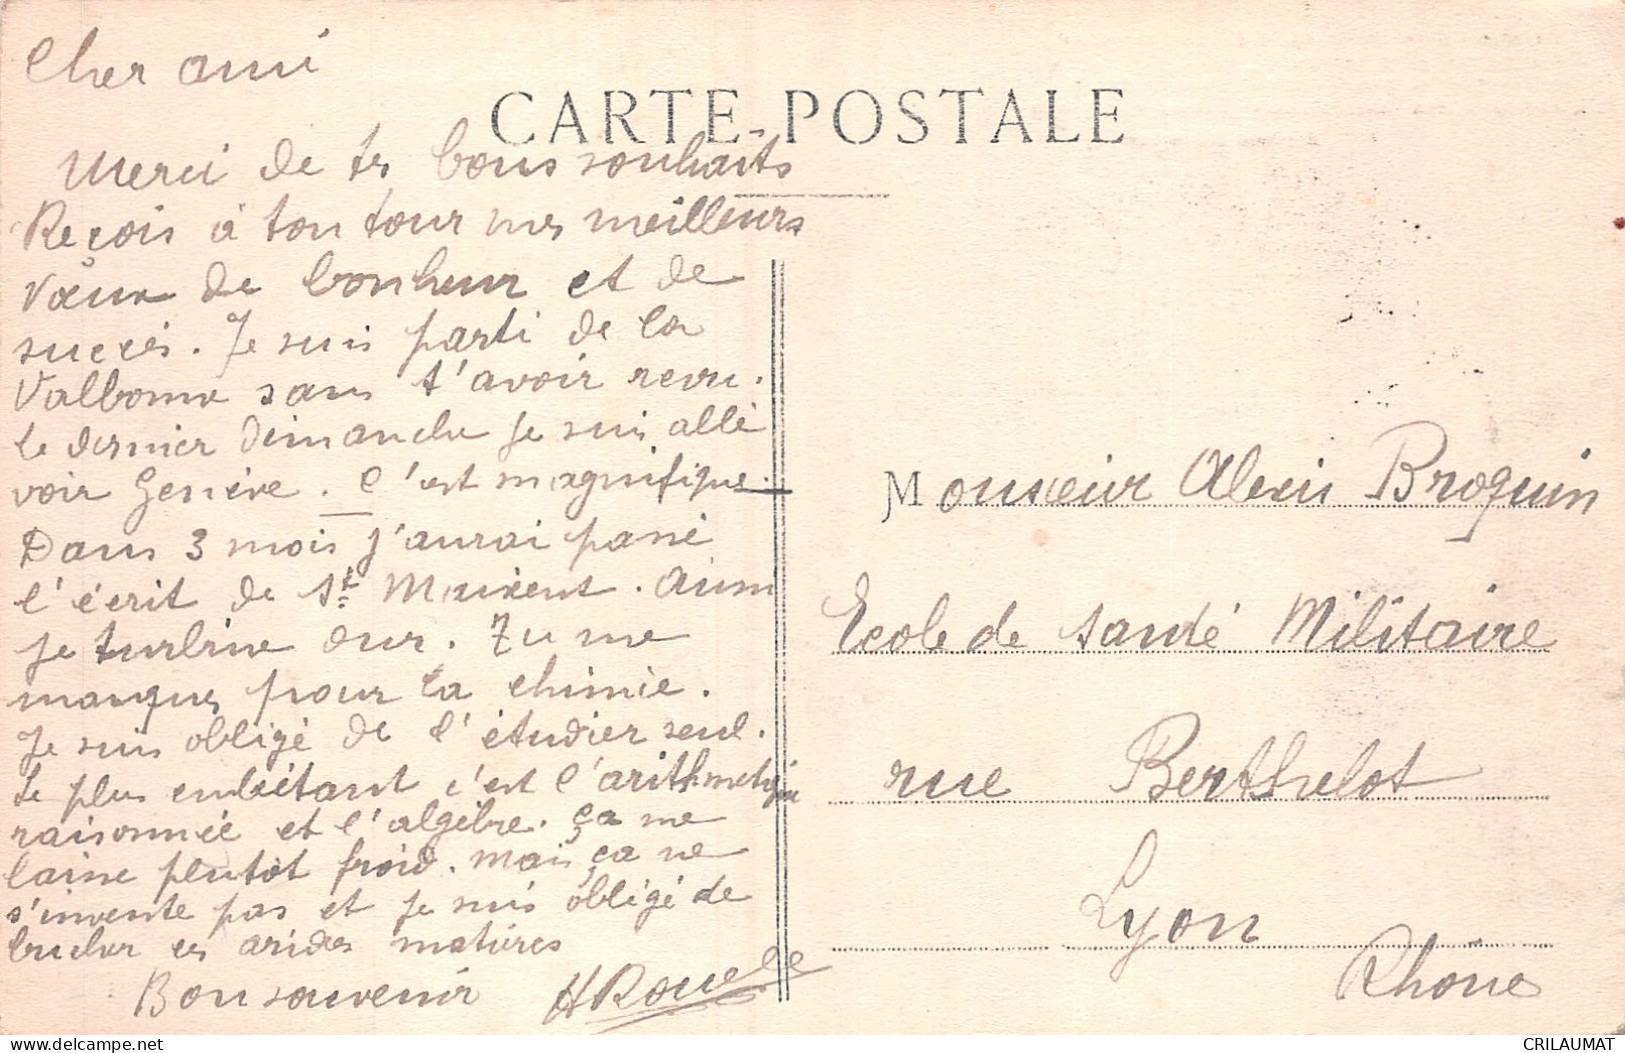 Cher ami
CARTE POSTALE
Merci de tes bons souhaits
Reçois à ton tour mes meilleurs
vœux de bonheur et de
succès. Je suis parti de la
Valbonne sans t'avoir revu.
le dernier dimanche je suis allé
voir Genève. C'est magnifique.
Dans 3 mois j'aurai passé
l'écrit de St Maixent. Aussi
je turbine dur. Tu me
manques pour la chimie.
Je suis obligé de l'étudier seul.
Le plus embêtant c'est l'arithmétique
raisonnée et l'algèbre. ça me
laisse plutôt froid. Mais ça ne
s'invente pas et je suis obligé de
bucher ces arides matières
Bon souvenir
Monsieur Alexis Broquin
Ecole de Santé Militaire
rue Berthelot
Lyon
Rhône
CRILAUMAT
delcampe.net